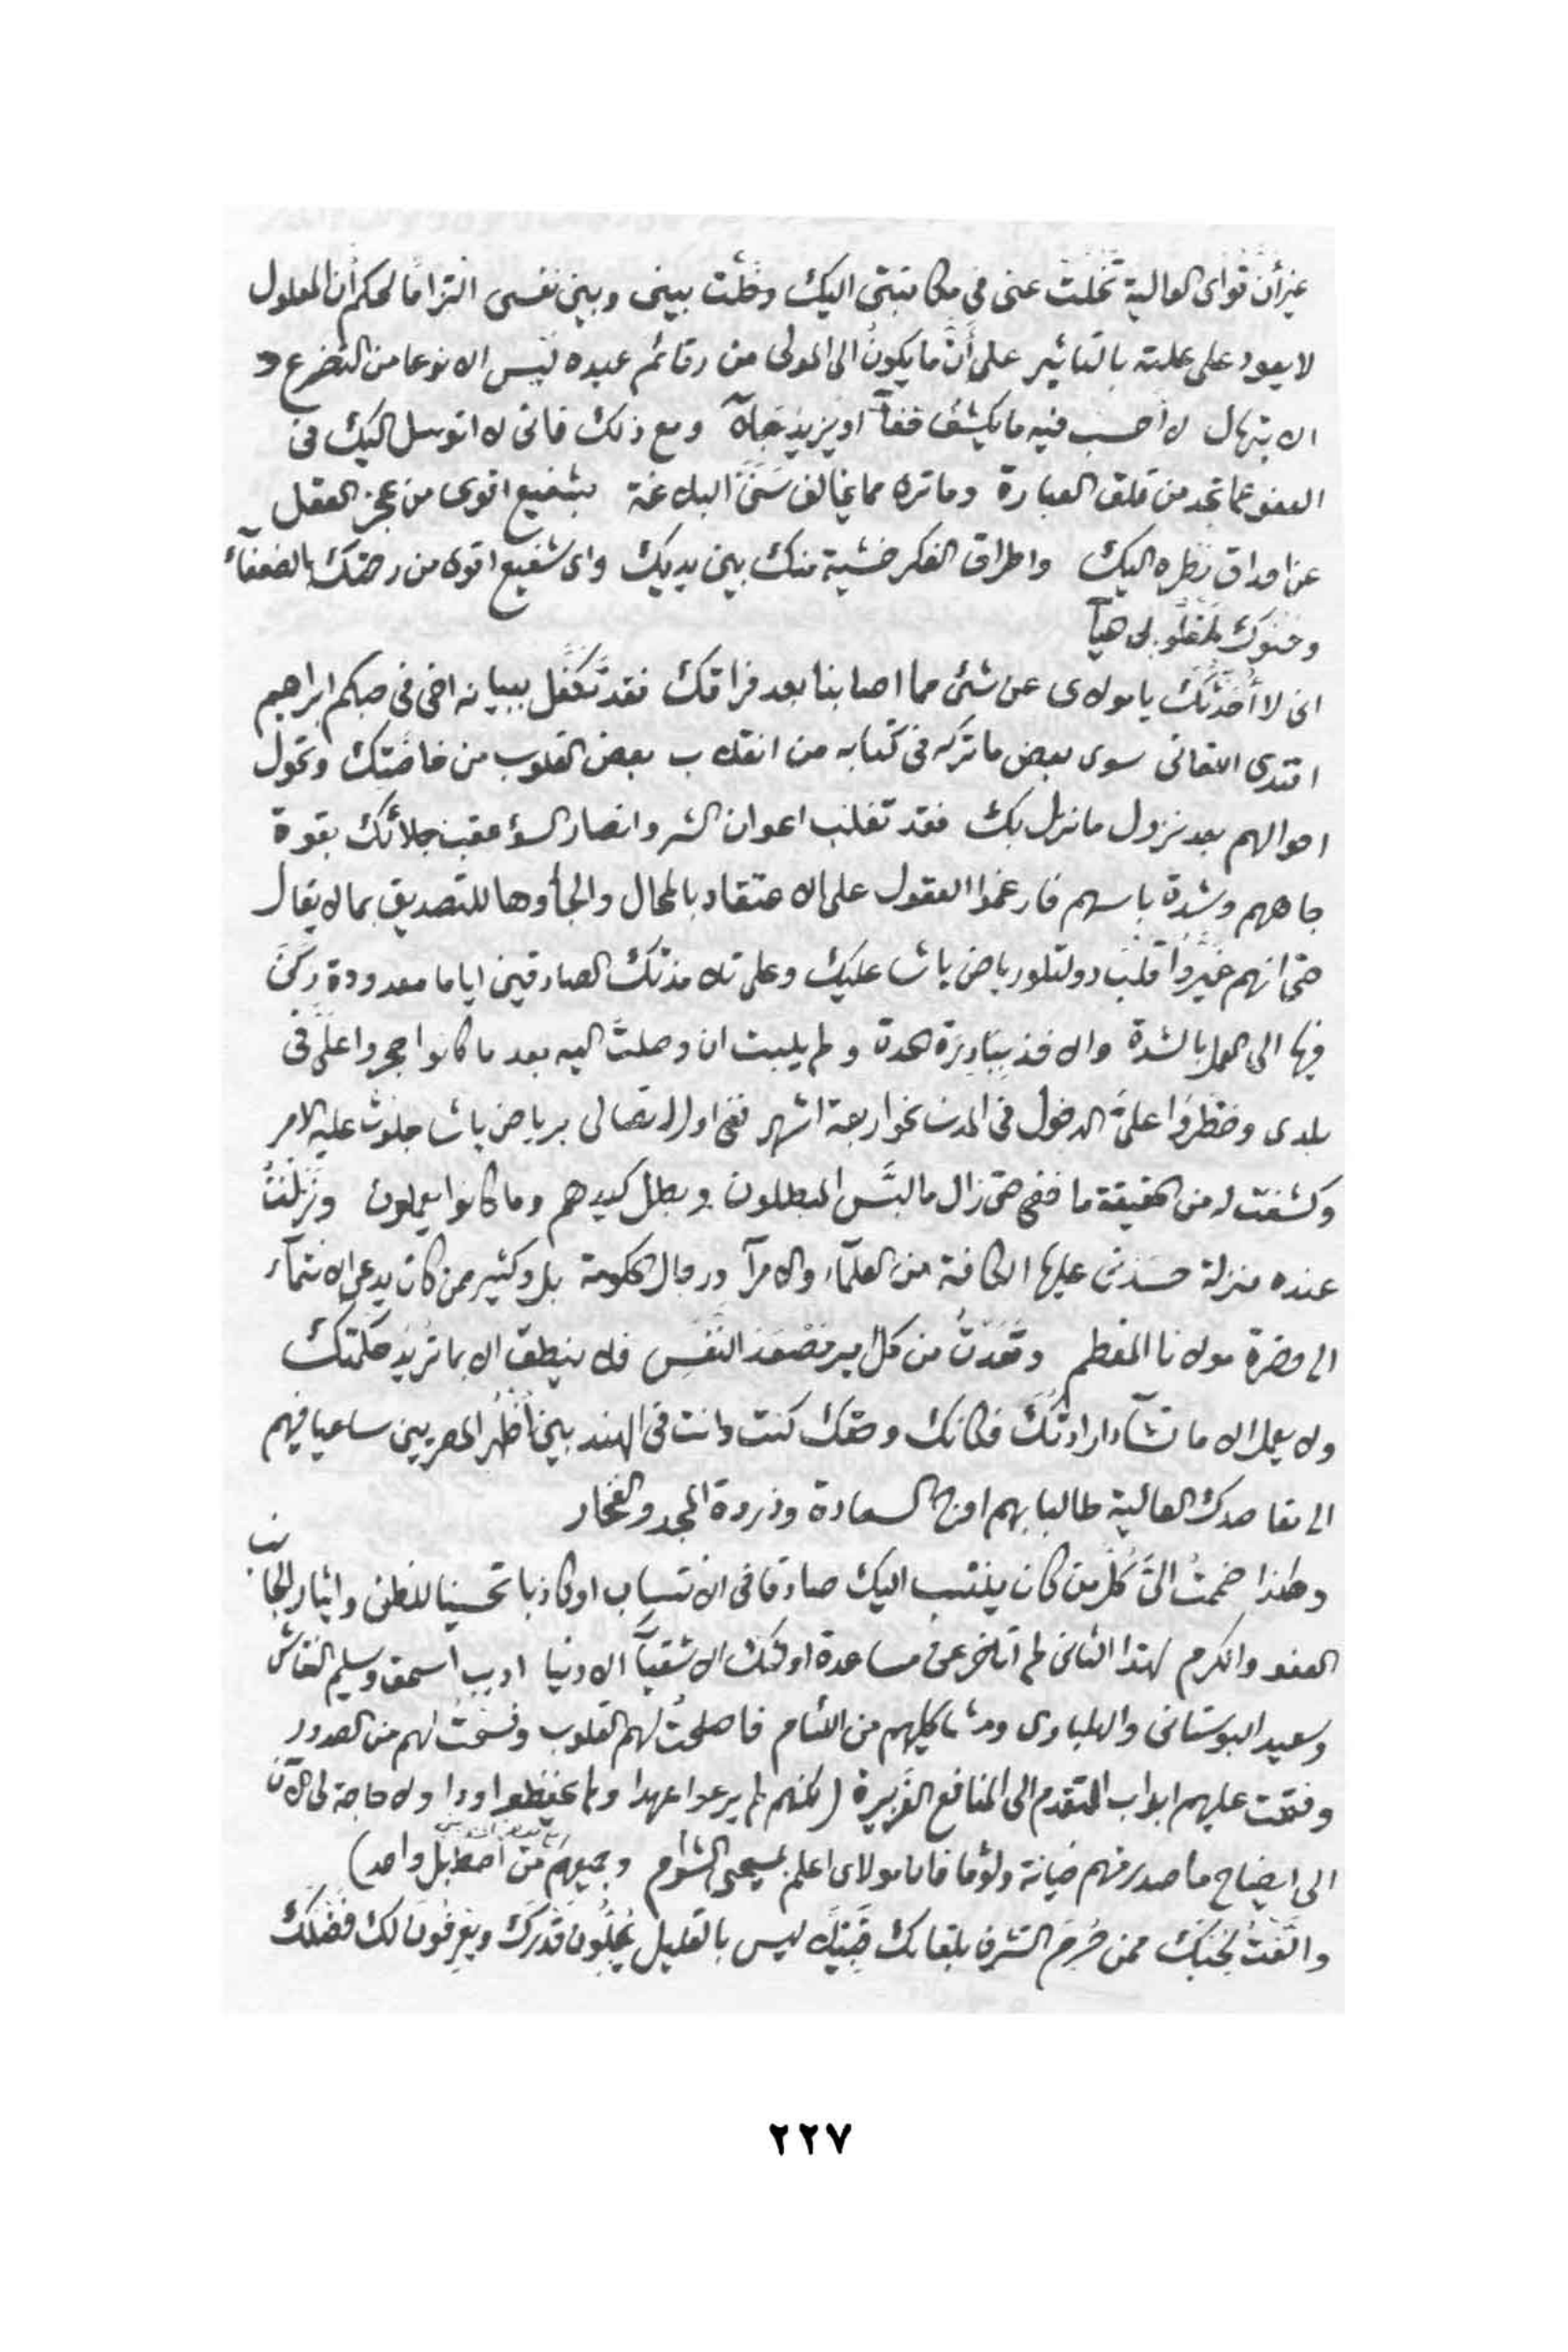 غير أن قواى العالية تخلت عنى فى مكاتبتى اليك وخلت بينى وبين نفسى التزاما لحكم أن المعلول
لا يعود على علته بالتاثير على أن ما يكون الى المولى من رقائم عبده ليس الا نوعا من التضرع و
الابتهال لا أحسب فيه ما يكشف خفآ او يزيد جلآ ومع ذلك فانى لا اتوسل اليك فى
العفو عما تجد من قلق العبارة وما تره مما يخالف سنن البلاغة بشفيع اقوى من عجز العقل
عن احداق نظره اليك واطراق الفكر خشية منك بين يديك واى شفيع اقوى من رحمتك بالضعفآء
وحنوك
انى لا أحدثك يا مولاى عن شئ مما اصابنا بعد فراقك فقد تكفل ببيانه اخى فى حبكم ابراهيم
افندى اللقانى سوى بعض ما تركه فى كتابه من انقلاب بعض القلوب من خاصتك وتحول
احوالهم بعد نزول ما نزل بك فقد تغلب اعوان الشر وانصار السؤ عقب جلائك بقوة
جاههم وشدة باسهم فارغموا العقول على الاعتقاد بالمحال والجأوها للتصديق بما لا يقال
حتى انهم غيروا قلب دولتلو رياض باشا عليك وعلى تلامذتك الصادقين اياما معدودة ركن
فيها الى العمل بالشدة والاخذ ببادرة الحدة ولم يلبث ان وصلت اليه بعد ما كانوا حجروا على فى
بلدى وحظروا على الدخول فى المدن نحو اربعة اشهر ففى اول اتصالى برياض باشا جلوت عليه الامر
وكشفت له من الحقيقة ما خفى حتى زال ما لبس المبطلون وبطل كيدهم وما كانوا يعملون ونزلت
عنده منزلة حسدنى عليها الكافة من العلمآء والامرآ ورجال الحكومة بل وكثير ممن كان يدعى الانتمآء
الى حضرة مولانا المعظم وقعدت من كل مرصد النفس فلا ينطق الا بما تريد حكمتك
ولا يعمل الا ما تشآء ارادتك فكانك وحقك كنت وانت فى الهند بين أظهر المصريين ساعيا فيهم
الى مقاصدك العالية طالبا بهم اوج السعادة وذروة المجد والفخار
ولهذا ضممت الى كل من كان ينتسب اليك صادقا فى الانتساب او كاذبا تحسينا للظن وايثار الجانب
العفو والكرم لهذا الثانى لم اتاخر عن مساعدة اولئك الاشقيآ الادنيا اديب اسحق وسليم النقاش
وسعيد البوستانى والهلباوى ومشاكليهم من اللئام فاصلحت لهم القلوب وفسحت لهم من الصدور
وفتحت عليهم ابواب التقدم الى المنافع الغزيرة (لكنهم لم يرعوا عهدا ولم يحفظوا ودا ولا حاجة لى الآن
الى ايضاح ما صدر منهم خيانة ولؤما فانا مولاى اعلم بمسيحى الشوام وجميعهم من اصطبل واحد)
والفت لحبك ممن حرم التشرف بلقائك قبيلا ليس بالقليل يجلون قدرك ويعرفون لك فضلك
٢٢٧